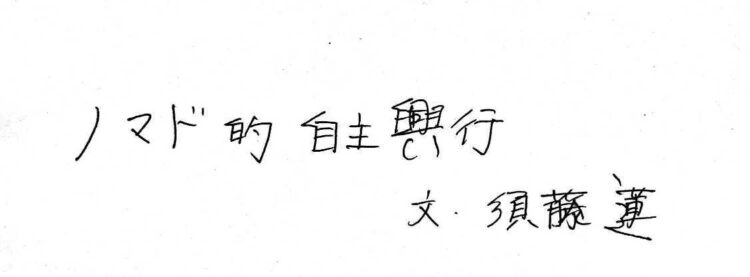 ノマド的 自主興行
文・須藤蓮